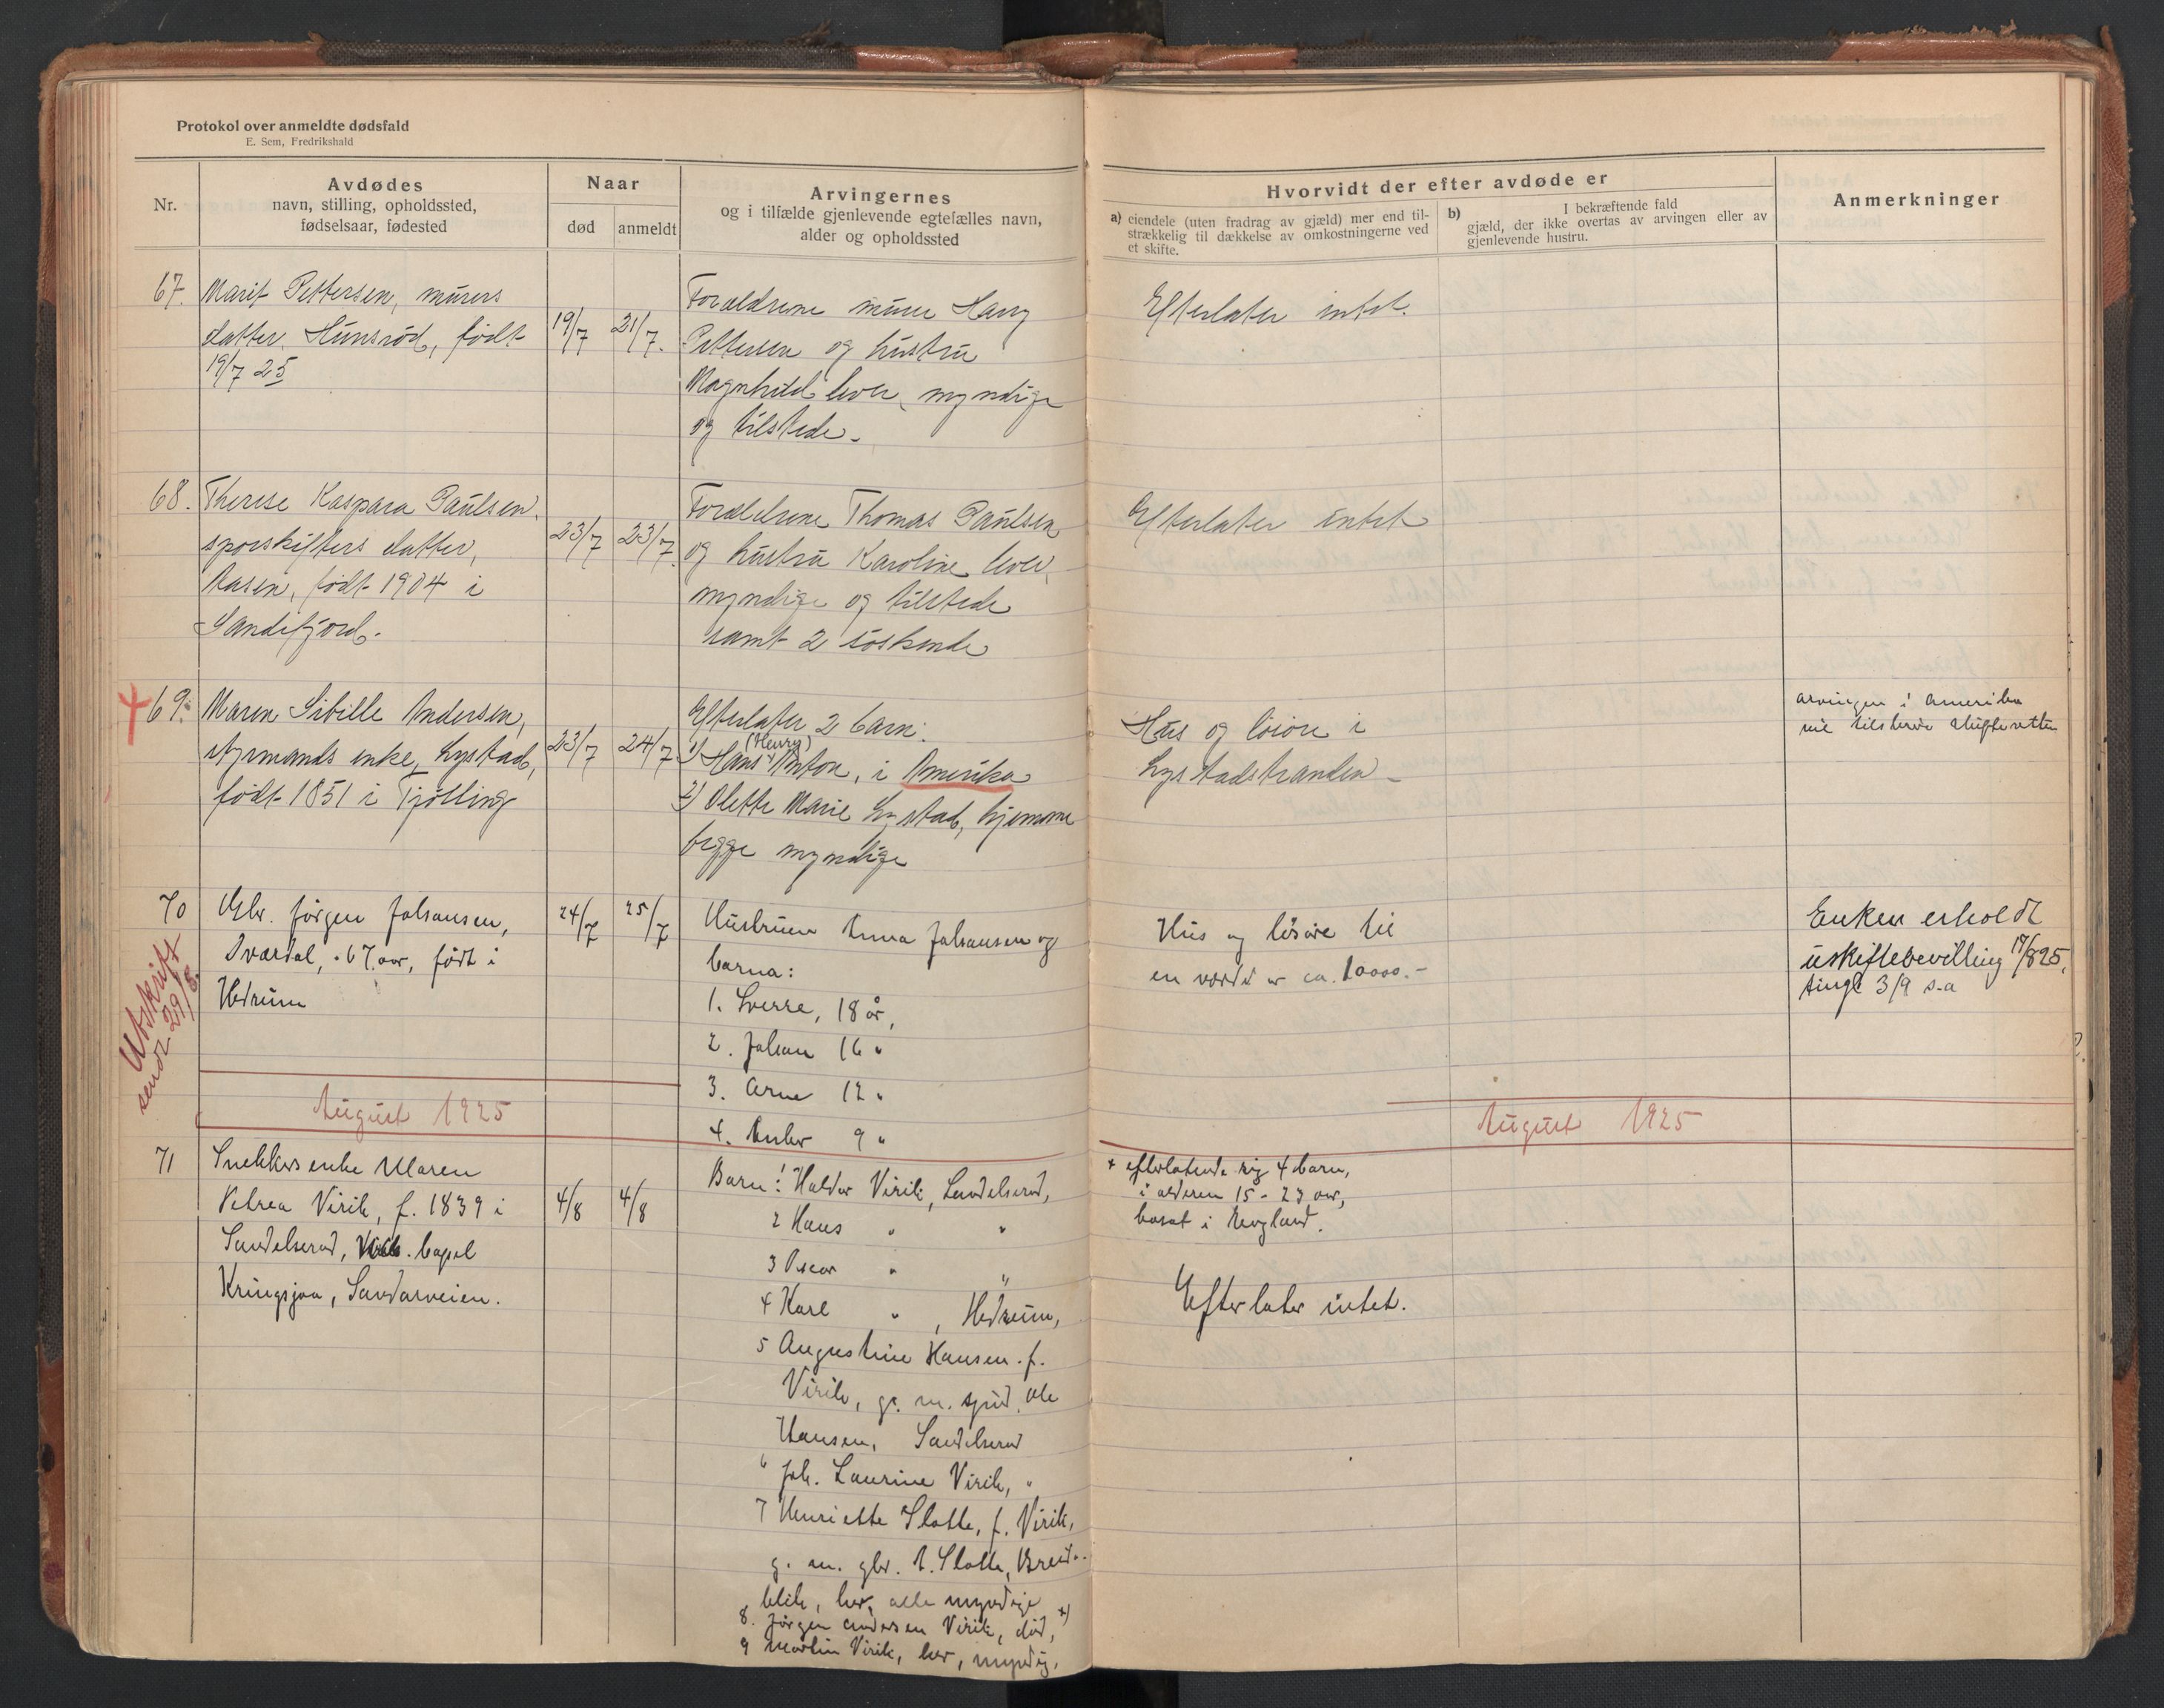 Protokol over anmeldte dødsfald
E. Sem, Fredrikshald
Nr.
Avdødes
navn, stilling, opholdssted,
fødselsaar, fødested
Naar
død
anmeldt
Arvingernes
og i tilfælde gjenlevende egtefælles navn,
alder og opholdssted
Hvorvidt der efter avdøde er
a) eiendele (uten fradrag av gjæld) mer end til-
strækkelig til dækkelse av omkostningerne ved
et skifte.
b) I bekræftende fald
gjæld, der ikke overtas av arvingen eller av
gjenlevende hustru.
Anmerkninger
67. Marit Pettersen, murers
datter, Hunsrød, født
19/7 25
19/7
21/7.
Forældrene murer Harry
Pettersen og hustru
Magnhild lever, myndige
og tilstede.
Efterlater intet.
68. Therese Kaspara Paulsen,
sporskifters datter,
Aasen, født 1904 i
Sandefjord.
23/7
23/7.
Forældrene Thomas Paulsen
og hustru Karoline lever,
myndige og tilstede
samt 2 søskende
Efterlater intet
69. Maren Sibille Andersen,
styrmands enke, Lystad,
født 1851 i Tjølling
23/7
24/7
Efterlater 2 barn:
(Henry)
1) Hans Anton, i Amerika
2) Olette Marie Lystad, hjemme
begge myndige
Hus og løsøre i
Lystadstranden
arvingen i Amerika
vil tilskrive skifteretten
70 Gbr. Jørgen Johansen,
Sværdal, 67 aar, født i
Hedrum
24/7
25/7
Hustruen Anna Johansen og
barna:
1. Sverre, 18 år,
2. Johan 16 "
3. Arne 12 "
4. 9 "
Hus og løsøre til
en værdi av ca. 10000.-
Enken erholdt
uskiftebevilling 17/8 25,
tingl 3/9 s.a
Utskrift
sendt 29/8.
August 1925
August 1925
71 Snekkers enke Maren
Petrea Virik, f. 1839 i
Sandelserød, Virik. bopel
Kringsjaa, Sandarveien.
4/8
4/8
Barn: Haldor Virik, Sandelserød,
2 Hans " "
3 Oscar " "
4 Karl " , Hedrum,
5 Augustine Hansen f.
Virik, g. m. Ole
Hansen, Sandelserød
6 Joh. Laurine Virik, "
7 Henriette Slotte, f. Virik,
g. m. gbr. A. Slotte, Breid-
blik, her, alle myndige
8. Jørgen Andersen Virik, død, x)
9 Martin Virik, her, myndig.
x efterlatende sig 4 barn,
i alderen 15 - 23 aar,
bosat i England.
Efterlater intet.